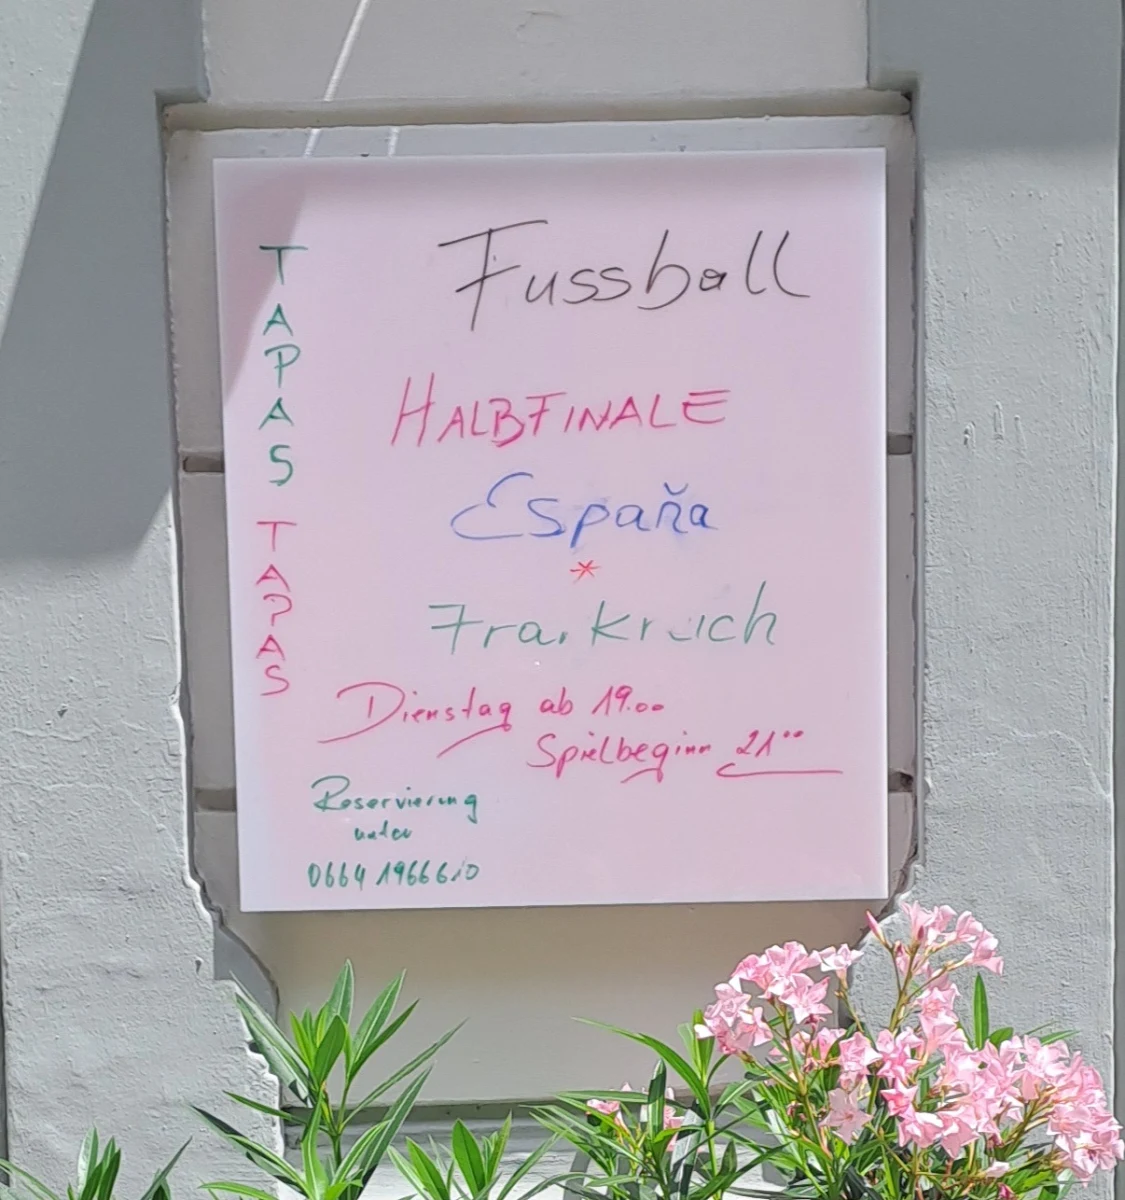 TAPAS
TAPAS
Fussball
HALBFINALE
España
*
Frankreich
Dienstag ab 19.00
Spielbeginn 21⁰⁰
Reservierung
unter
0664 1966610